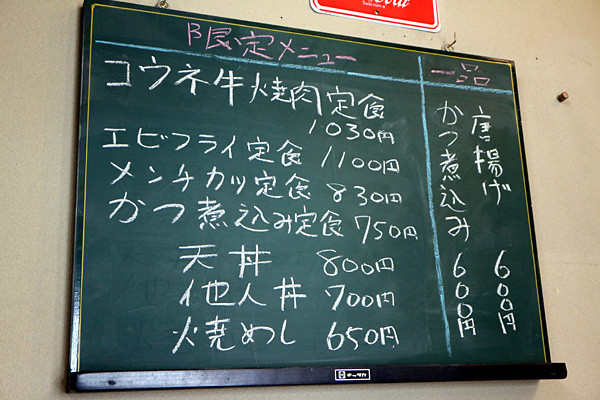 限定メニュー
コウネ牛焼肉定食
1030円
エビフライ定食 1100円
メンチカツ定食 830円
かつ煮込み定食 750円
天丼 800円
他人丼 700円
焼めし 650円
一品
唐揚げ 600円
かつ煮込み 600円